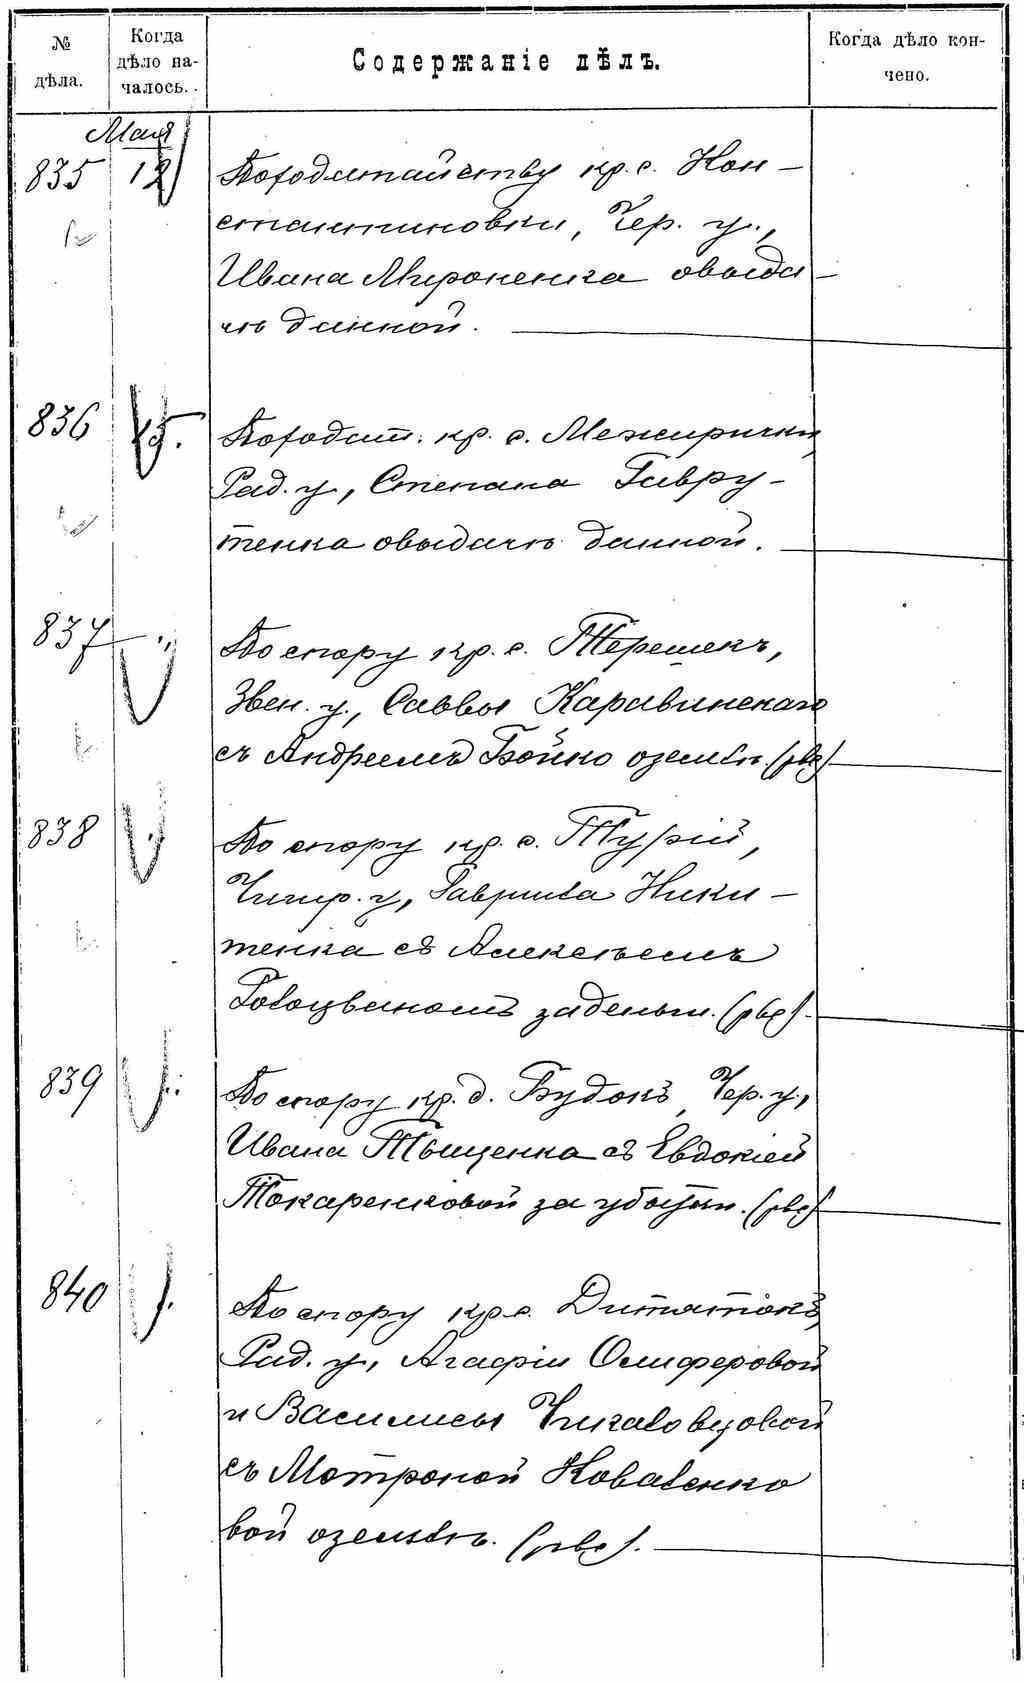 № дѣла.
Когда дѣло на-
чалось.
Содержаніе дѣлъ.
Когда дѣло кон-
чено.
Мая
835 12 По ходатайству кр. с. Кон-
стантиновки, Чер. у.,
Ивана Мироненка о выда-
чѣ данной.
836 15. По ходат. кр. с. Межирички,
Рад. у., Степана Гавру-
тенка о выдачѣ данной.
837 — „ По спору кр. с. Терешекъ,
Звен. у., Саввы Каравинскаго
съ Андреемъ Бойко о землѣ.
838 По спору кр. с. Турій,
Чигир. у., Гавриила Ники-
тенка съ Алексѣемъ
за деньги.
839 По спору кр. д. Будокъ, Чер. у.,
Ивана Тыщенка съ Евдокіей
Токаренковой за убытки.
840 По спору кр. с. Дитятокъ,
Рад. у., Агафіи Олиферовой
и Василисы Чикаловцовой
съ Мотроной Коваленко
вой о землѣ.